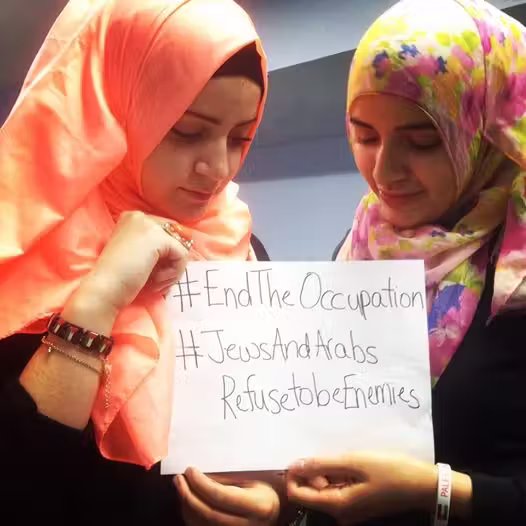 #EndTheOccupation
#JewsAndArabs
RefusetobeEnemies